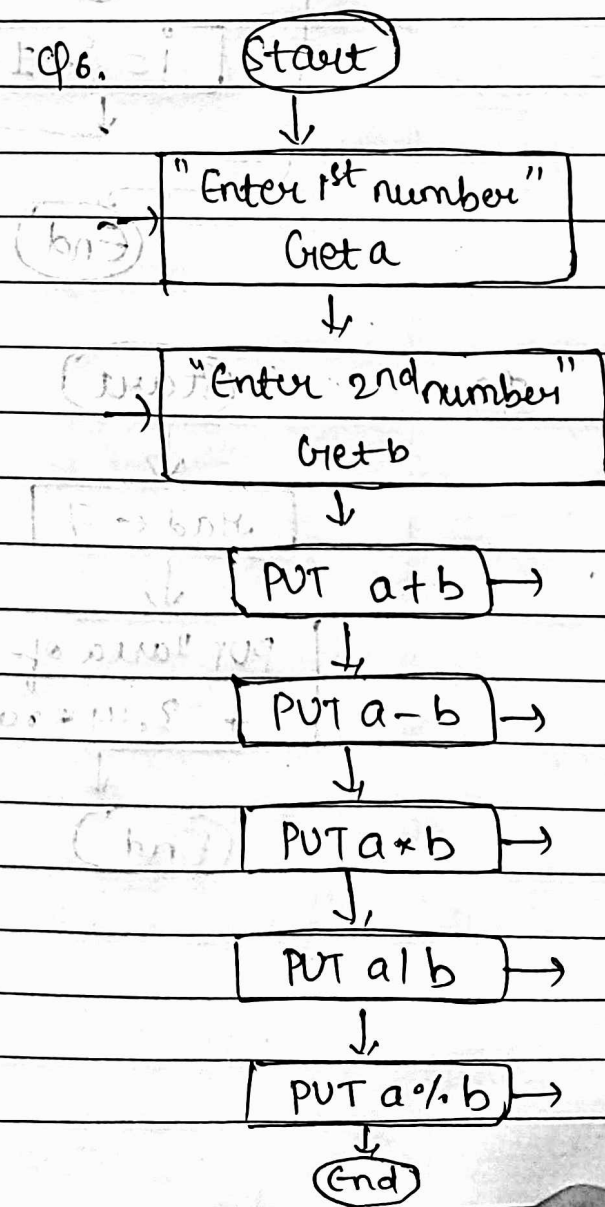 Q6. Start
"Enter 1st number"
Get a
"Enter 2nd number"
Get b
PUT a + b
PUT a - b
PUT a * b
PUT a / b
PUT a % b
End